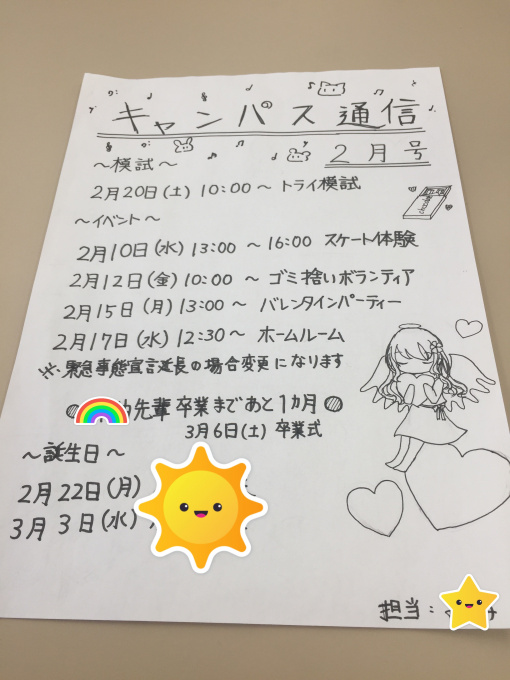 キャンパス通信
2月号
〜模試〜
2月20日(土) 10:00〜 トライ模試
〜イベント〜
2月10日(水) 13:00 〜 16:00 スケート体験
2月12日(金) 10:00 〜 ゴミ捨いボランティア
2月15日(月) 13:00 〜 バレンタインパーティー
2月17日(水) 12:30〜 ホームルーム
※緊急事態宣言延長の場合変更になります
先輩 卒業まであと1ヵ月
3月6日(土) 卒業式
〜誕生日〜
2月22日(月)
3月3日(水)
担当: